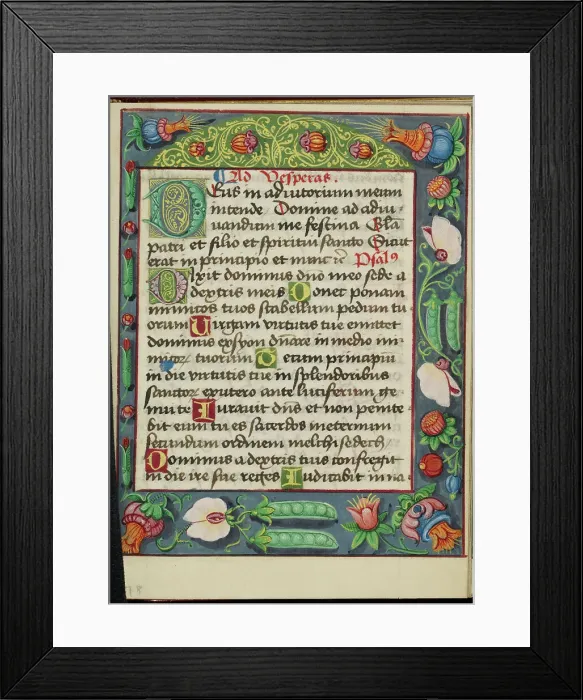 Ad Vesperas.
Deus in adiutorium meum
intende Domine ad adiu-
uandum me festina Gla
patri et filio et spiritui sancto Sicut
erat in principio et nunc rc Psalꝰ
Dixit dominus dno meo sede a
dextris meis Donec ponam
inimicos tuos scabellum pedum tu
orum Uirgam virtutis tue emittet
dominus ex syon dnare in medio ini-
micorꝝ tuorum Tecum principiū
in die virtutis tue in splendoribus
sanctorꝝ ex utero ante luciferum ge-
nui te Iurauit dns et non penite-
bit eum tu es sacerdos in eternum
secundum ordinem melchisedech
Dominus a dextris tuis confregit
in die ire sue reges Iudicabit in na